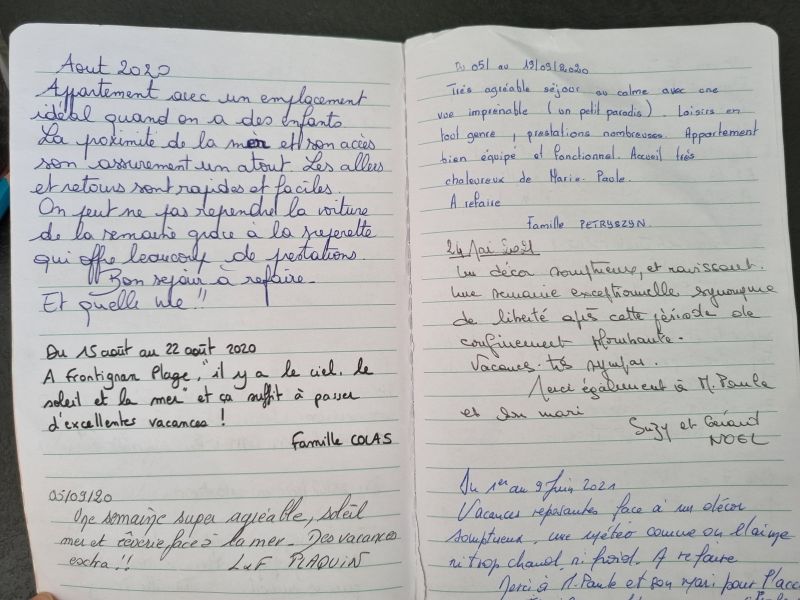 Aout 2020
Appartement avec un emplacement
idéal quand on a des enfants
La proximité de la mer et son accès
son assurement un atout. Les allers
et retours sont rapides et faciles.
On peut ne pas reprendre la voiture
de la semaine grâce à la superette
qui offre beaucoup de prestations.
Bon sejour à refaire.
Et quelle vue !!
Du 15 août au 22 août 2020
A Frontignan Plage, "il y a le ciel, le
soleil et la mer" et ça suffit à passer
d'excellentes vacances !
Famille COLAS
05/09/20
Une semaine super agréable, soleil
mer et rêverie face à la mer. Des vacances
extra !! L et F PLAQUIN
Du 05/ au 19/09/2020
Très agréable séjour au calme avec une
vue imprénable (un petit paradis). Loisirs en
tout genre, prestations nombreuses. Appartement
bien équipé et fonctionnel. Accueil très
chaleureux de Marie-Paule.
A refaire
Famille PETRYSZYN.
24 Mai 2021
Un décor somptueux, et ravissant.
Une semaine exceptionnelle synonyme
de liberté après cette période de
confinement plombante.
Vacances très sympas.
Merci également à M. Paule
et son mari
Suzy et Gérard
NOEL
Du 1er au 9 Juin 2021
Vacances reposantes face à un décor
somptueux, une météo comme on l'aime
ni trop chaud, ni froid. A refaire
Merci à M. Paule et son mari pour l'acc